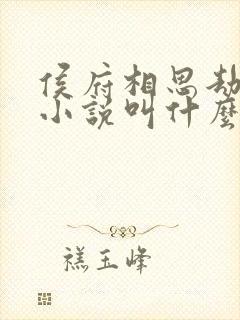 侯府相思劫
小说叫什麼
禚玉峰